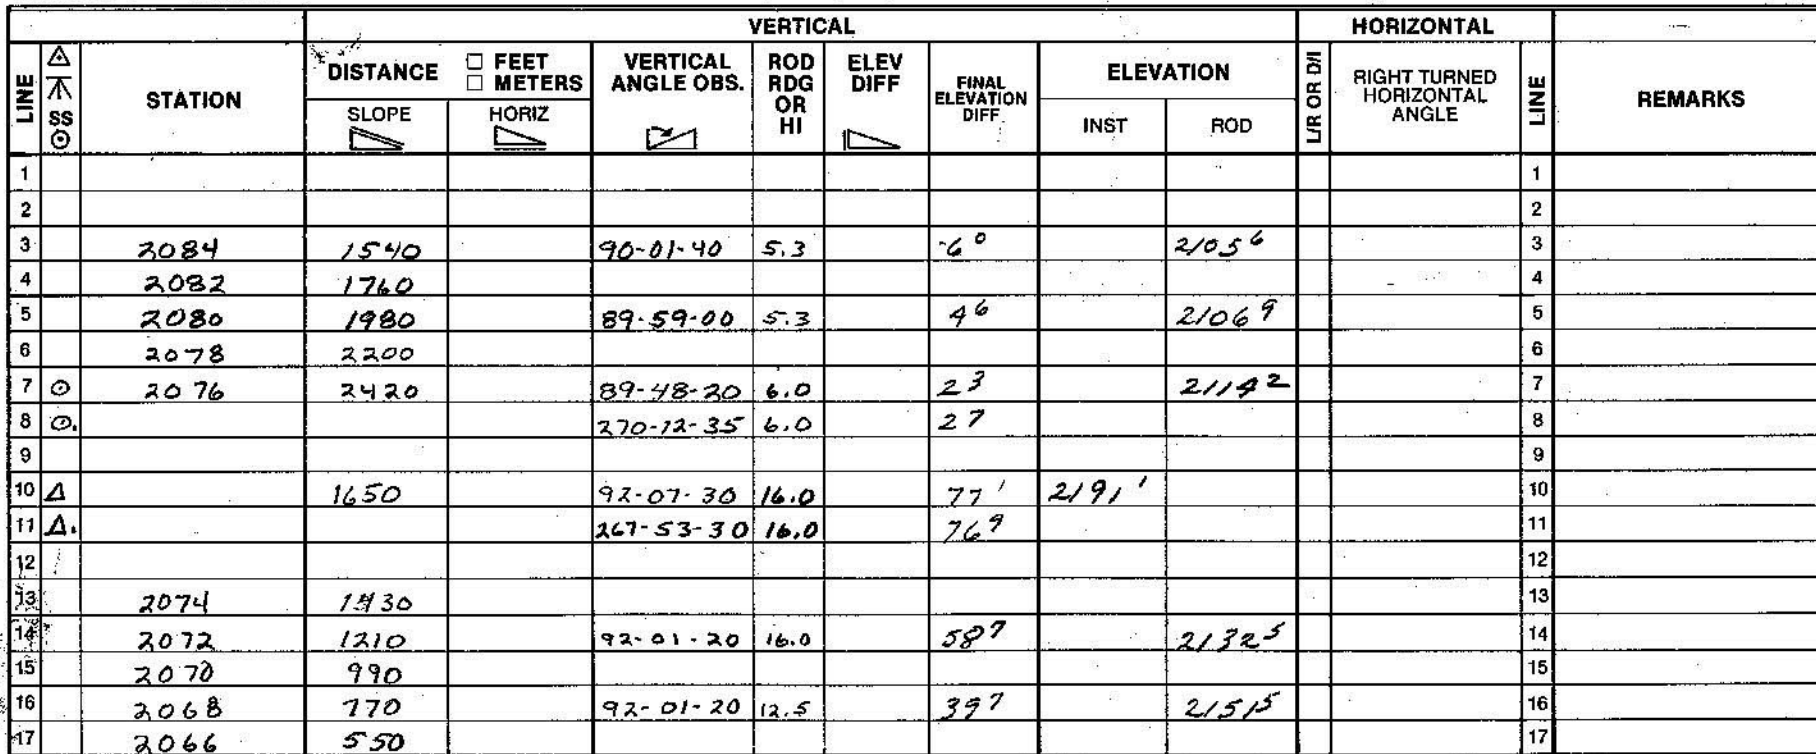 VERTICAL HORIZONTAL
LINE SS STATION DISTANCE □ FEET □ METERS SLOPE HORIZ VERTICAL ANGLE OBS. ROD RDG OR HI ELEV DIFF FINAL ELEVATION DIFF ELEVATION INST ROD L/R OR D/I RIGHT TURNED HORIZONTAL ANGLE LINE REMARKS
1 1
2 2
3 2084 1540 90-01-40 5.3 -6⁰ 2105⁶ 3
4 2082 1760 4
5 2080 1980 89-59-00 5.3 4⁶ 2106⁹ 5
6 2078 2200 6
7 ⊙ 2076 2420 89-48-20 6.0 2³ 2114² 7
8 ⊙. 270-12-35 6.0 2⁷ 8
9 9
10 Δ 1650 92-07-30 16.0 77¹ 2191¹ 10
11 Δ. 267-53-30 16.0 76⁹ 11
12 12
13 2074 1430 13
14 2072 1210 92-01-20 16.0 58⁷ 2132⁵ 14
15 2070 990 15
16 2068 770 92-01-20 12.5 39⁷ 2151⁵ 16
17 2066 550 17